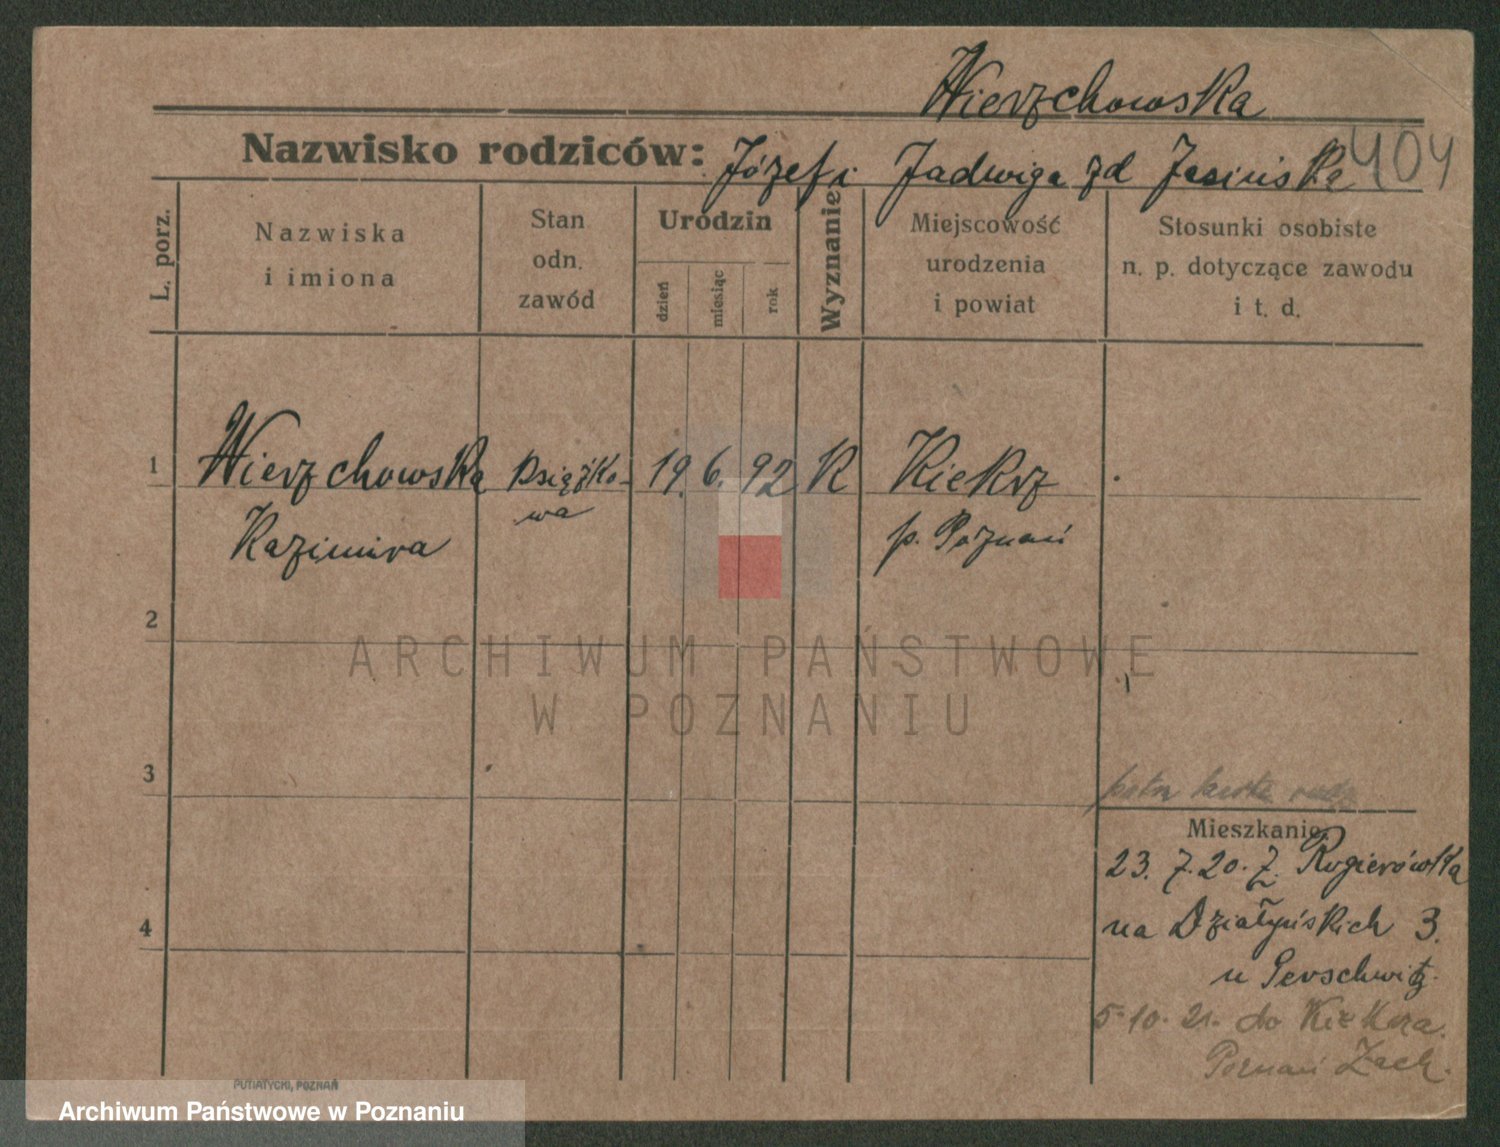 Wierzchowska
Nazwisko rodziców: Józef i Jadwiga zd Jasińska 404
L. porz.
Nazwiska
i imiona
Stan
odn.
zawód
Urodzin
dzień
miesiąc
rok
Wyznanie
Miejscowość
urodzenia
i powiat
Stosunki osobiste
n. p. dotyczące zawodu
i t. d.
1 Wierzchowska książko- 19. 6. 92 K Kiekrz
wa
Kazimira p. Poznań
2
3
Mieszkanie
23. 7. 20. z. Rogierówka
4
na Działyńskich 3.
u Perschwitz.
5.10.21. do Kiekrza.
Poznań Zach.
PUTIATYCKI, POZNAŃ
ARCHIWUM PAŃSTWOWE
W POZNANIU
Archiwum Państwowe w Poznaniu